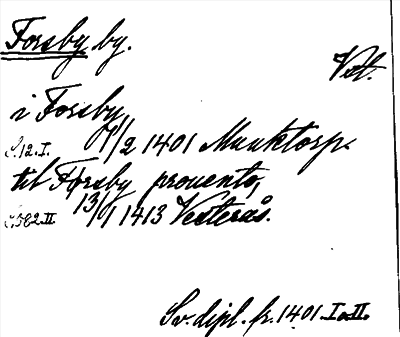 Forsby by.
Vstl.
i Forsby
S.12.I. 17/2 1401 Munktorp.
til Forsby prouento,
S.582.II 13/1 1413 Vesterås.
Sv. dipl. fr. 1401 I o. II.